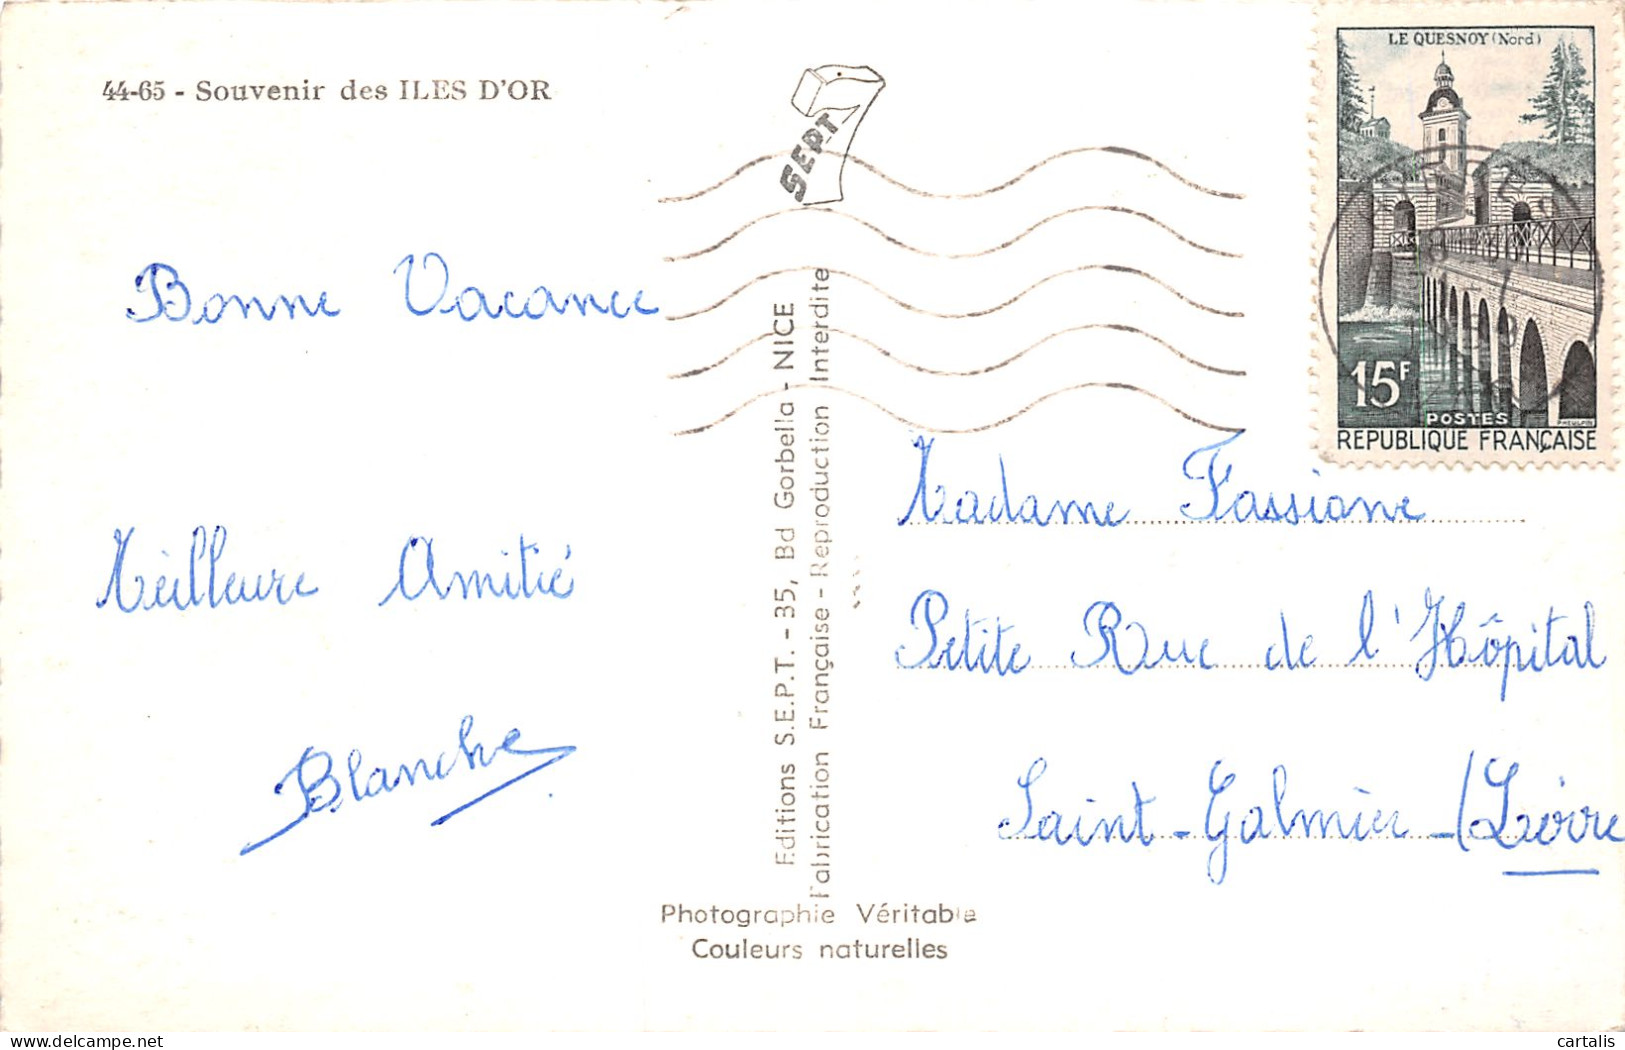 44-65 - Souvenir des ILES D'OR
SEPT
LE QUESNOY (Nord)
15F
POSTES
REPUBLIQUE FRANÇAISE
Bonne Vacance
Meilleure Amitié
Blanche
Editions S.E.P.T. - 35, Bd Gorbella - NICE
Fabrication Française - Reproduction Interdite
Madame Fassione
Petite Rue de l'Hôpital
Saint-Galmier - (Loire
Photographie Véritable
Couleurs naturelles
cartalis